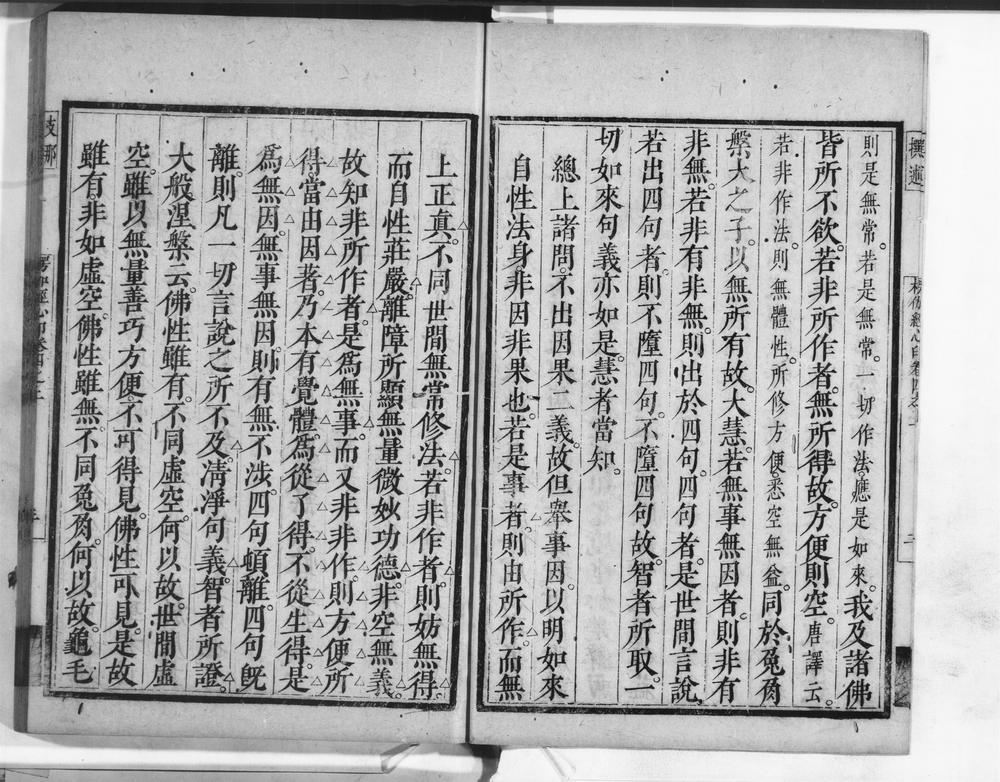 則是無常。若是無常。一切作法。應是如來。我及諸佛
皆所不欲。若非所作者。無所得故。方便則空。唐譯云。
若非作法。則無體性。所修方便。悉空無益。同於兔角
槃大之子。以無所有故。大慧。若無事無因者。則非有
非無。若非有非無。則出於四句。四句者。是世間言說。
若出四句者。則不墮四句。不墮四句故。智者所取。一
切如來句義亦如是。慧者當知。
總上諸問。不出因果二義。故但舉事因。以明如來
自性法身。非因非果也。若是事者。則由所作。而無
上正真。不同世間無常修法。若非作者。則妨無得。
而自性莊嚴。離障所顯。無量微妙功德。非空無義。
故知非所作者。是爲無事。而又非非作。則方便所
得。當由因著。乃本有覺體。爲從了得。不從生得。是
爲無因。無事無因。則有無不涉。四句頓離。四句旣
離。則凡一切言說之所不及。淸淨句義。智者所證。
大般涅槃云。佛性雖有。不同虛空。何以故。世間虛
空。雖以無量善巧方便。不可得見。佛性可見。是故
雖有。非如虛空。佛性雖無。不同兔角。何以故。龜毛